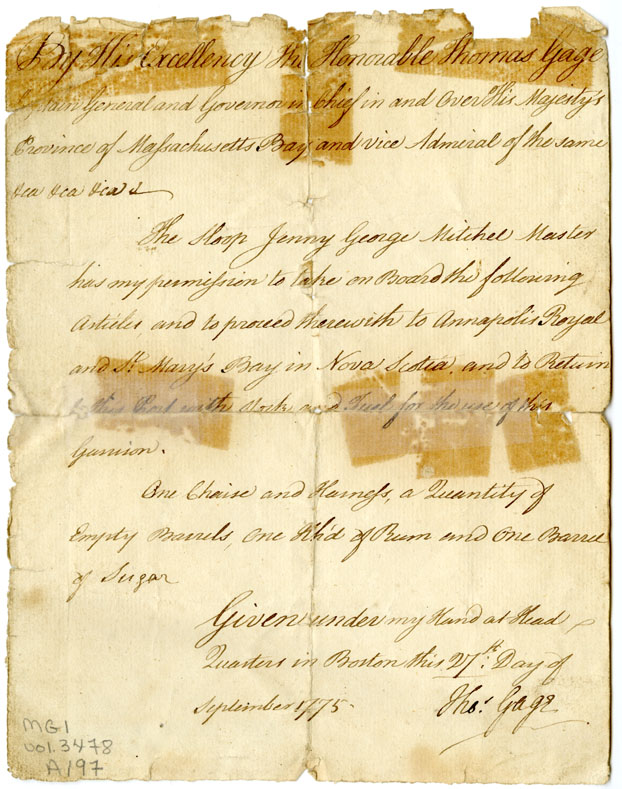 By His Excellency The Honorable Thomas Gage
Captain General and Governor in Chief in and Over His Majesty's
Province of Massachusetts Bay and Vice Admiral of the same
&ca &ca &ca &
The Sloop Jenny George Mitchel Master
has my permission to take on Board the following
Articles and to proceed therewith to Annapolis Royal
and St. Mary's Bay in Nova Scotia. and to Return
to this Port with Stock and Fuel for the use of this
Garrison.
One Chaise and Harness, a Quantity of
Empty Barrels, One Hhd of Rum and One Barrel
of Sugar
Given under my Hand at Head
Quarters in Boston this 27th: Day of
September 1775.
Thos. Gage
MG1
vol. 3478
A197